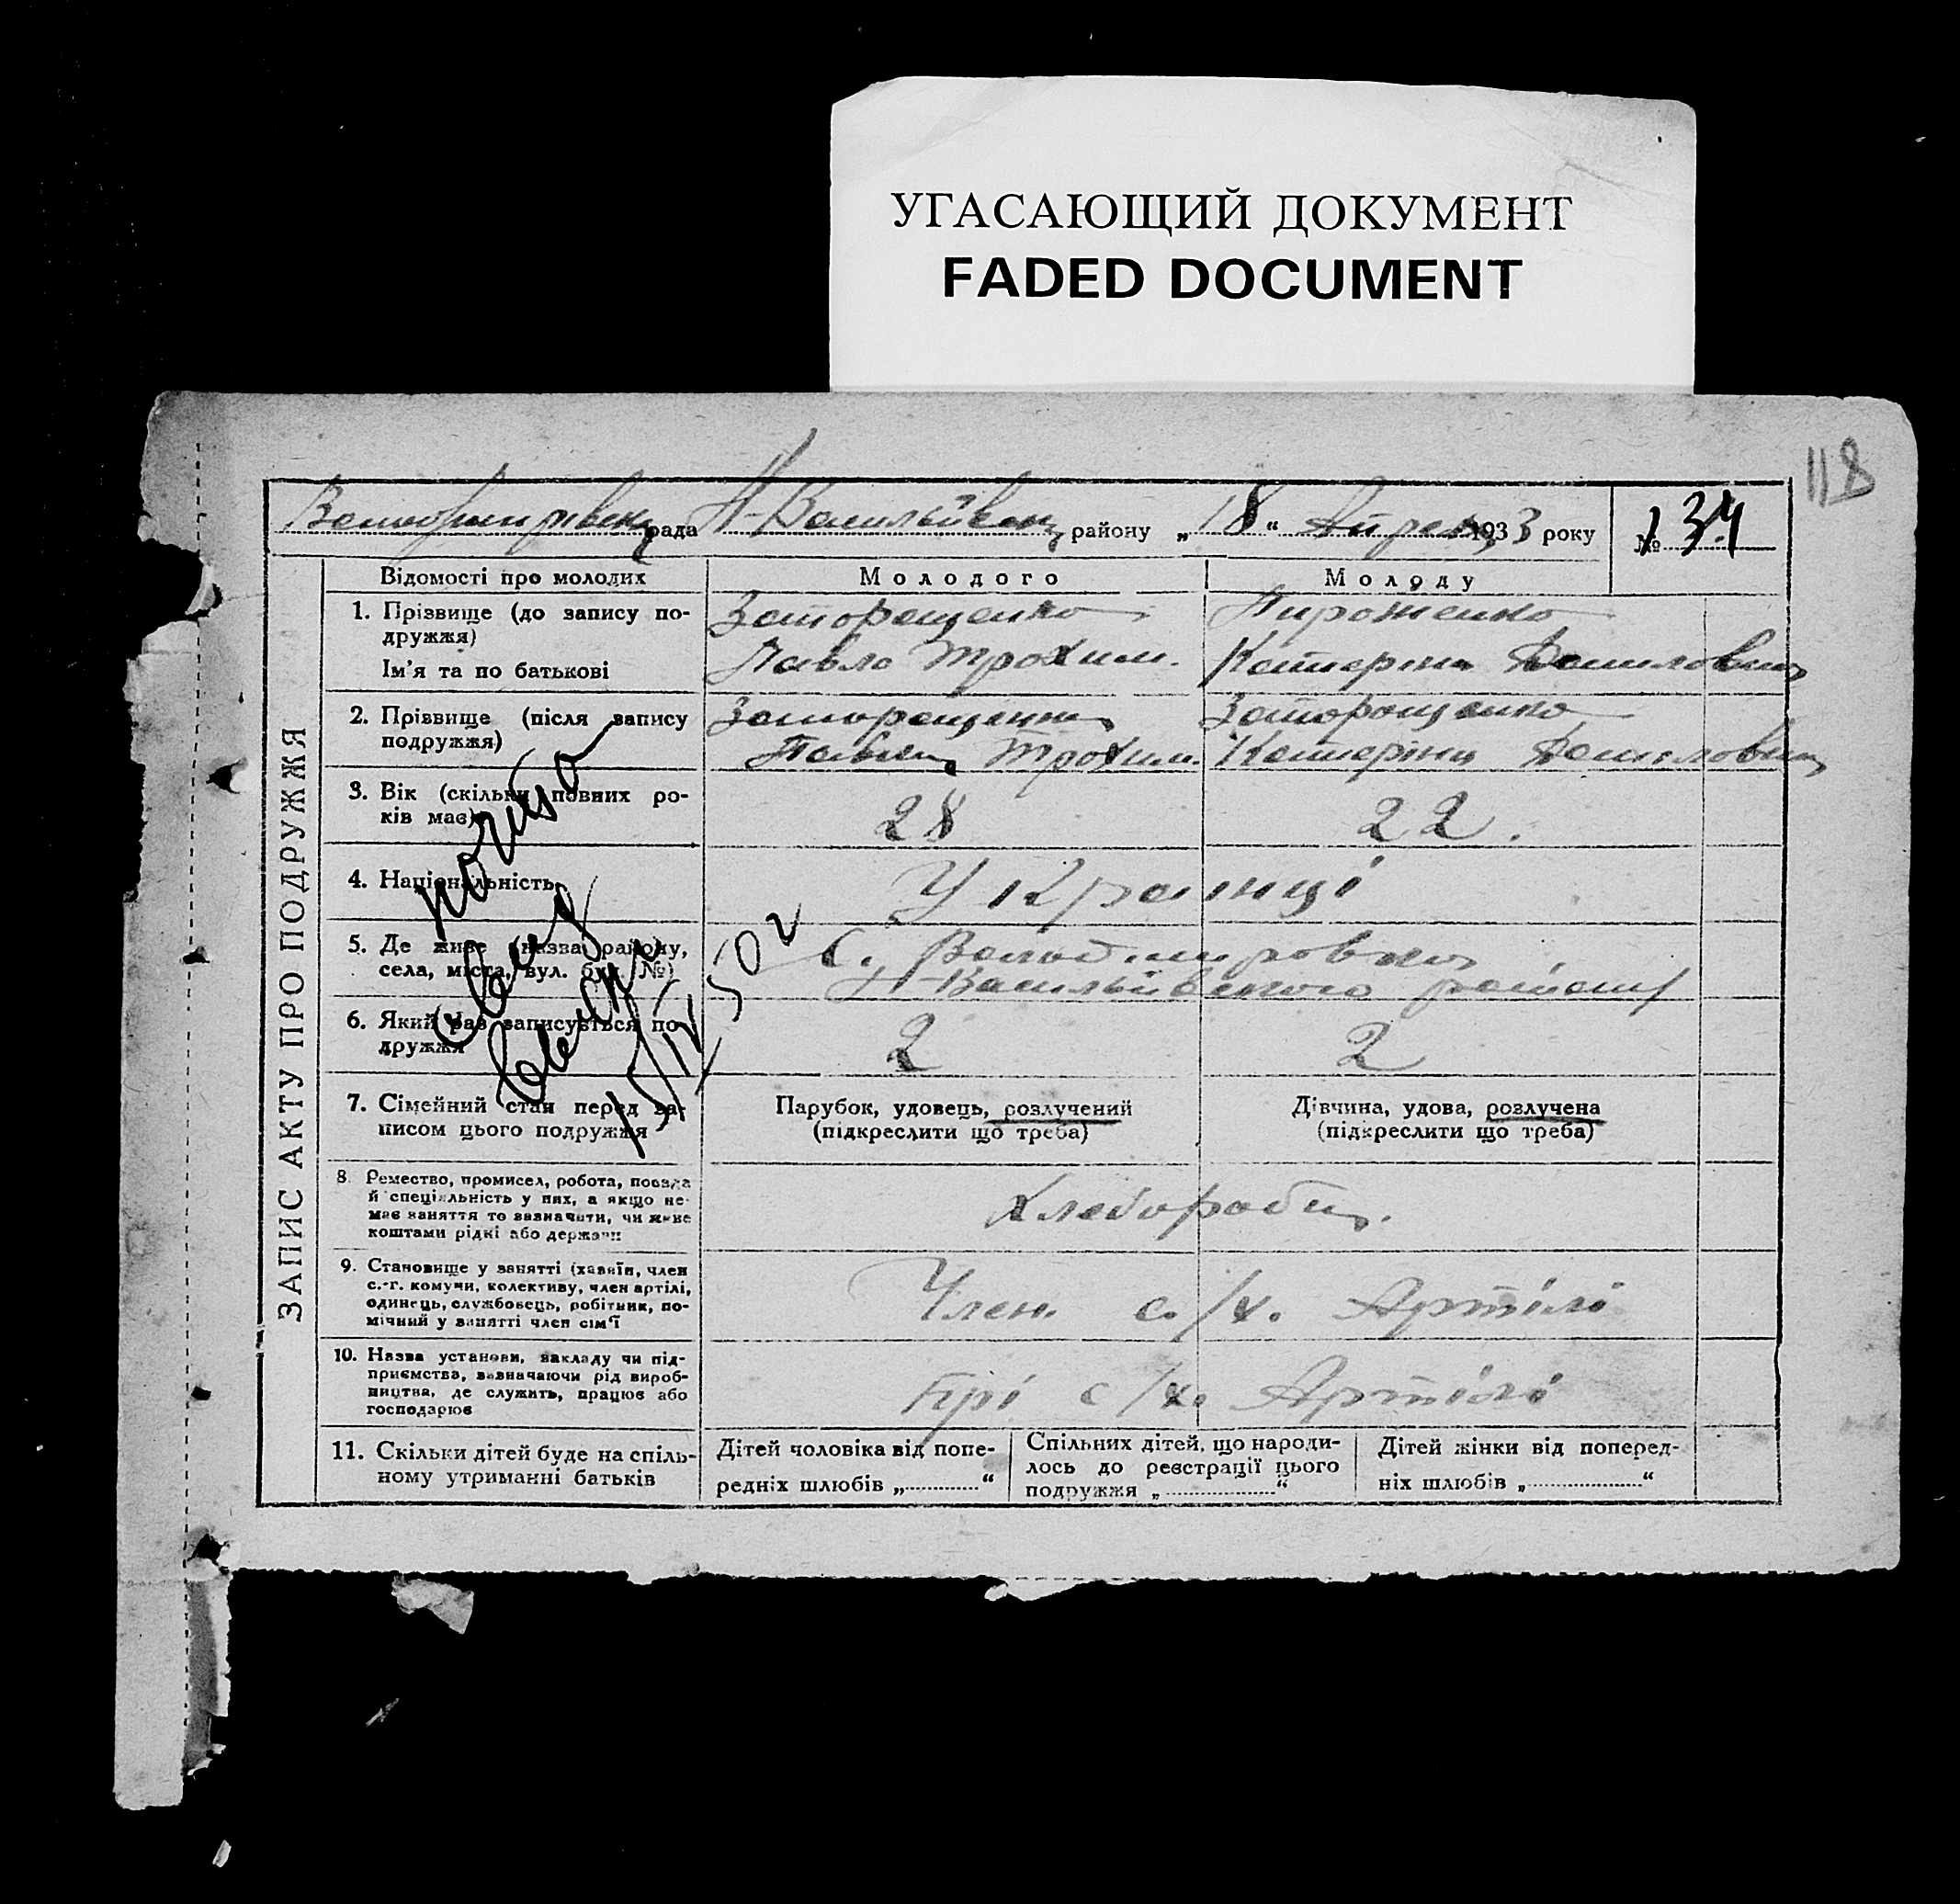 УГАСАЮЩИЙ ДОКУМЕНТ
FADED DOCUMENT
118
рада Н-Васильївськ району „18“ Апреля 1933 року № 134
ЗАПИС АКТУ ПРО ПОДРУЖЖЯ
Відомості про молодих
Молодого
Молоду
1. Прізвище (до запису по-
дружжя)
Ім'я та по батькові
Заторощенко
Павло Трохим.
Пироженко
Катерина Даниловна
2. Прізвище (після запису
подружжя)
Трохим.
Заторощенко
Катеріна Даниловна
3. Вік (скільки повних ро-
ків має)
28
22.
4. Національність
Українці
5. Де живе (назва району,
села, міста, вул. буд. №)
С. Володимировка
Н-Васильївського района
6. Який раз записується по-
дружжя
2
2
7. Сімейний стан перед за-
писом цього подружжя
Парубок, удовець, розлучений
(підкреслити що треба)
Дівчина, удова, розлучена
(підкреслити що треба)
8. Ремество, промисел, робота, посада
й спеціяльність у них, а якщо не-
має заняття то зазначити, чи живе
коштами рідні або держави
Хлебороби.
9. Становище у занятті (хазяїн, член
с.-г. комуни, колективу, член артілі,
одинець, службовець, робітник, по-
мічний у занятті член сім'ї
Член с/х. Артілі
10. Назва установи, закладу чи під-
приємства, зазначаючи рід вироб-
ництва, де служить, працює або
господарює
Прі с/х. Артілі
11. Скільки дітей буде на спіль-
ному утриманні батьків
Дітей чоловіка від попе-
редніх шлюбів „ “
Спільних дітей, що народи-
лось до реєстрації цього
подружжя „ “
Дітей жінки від поперед-
ніх шлюбів „ “